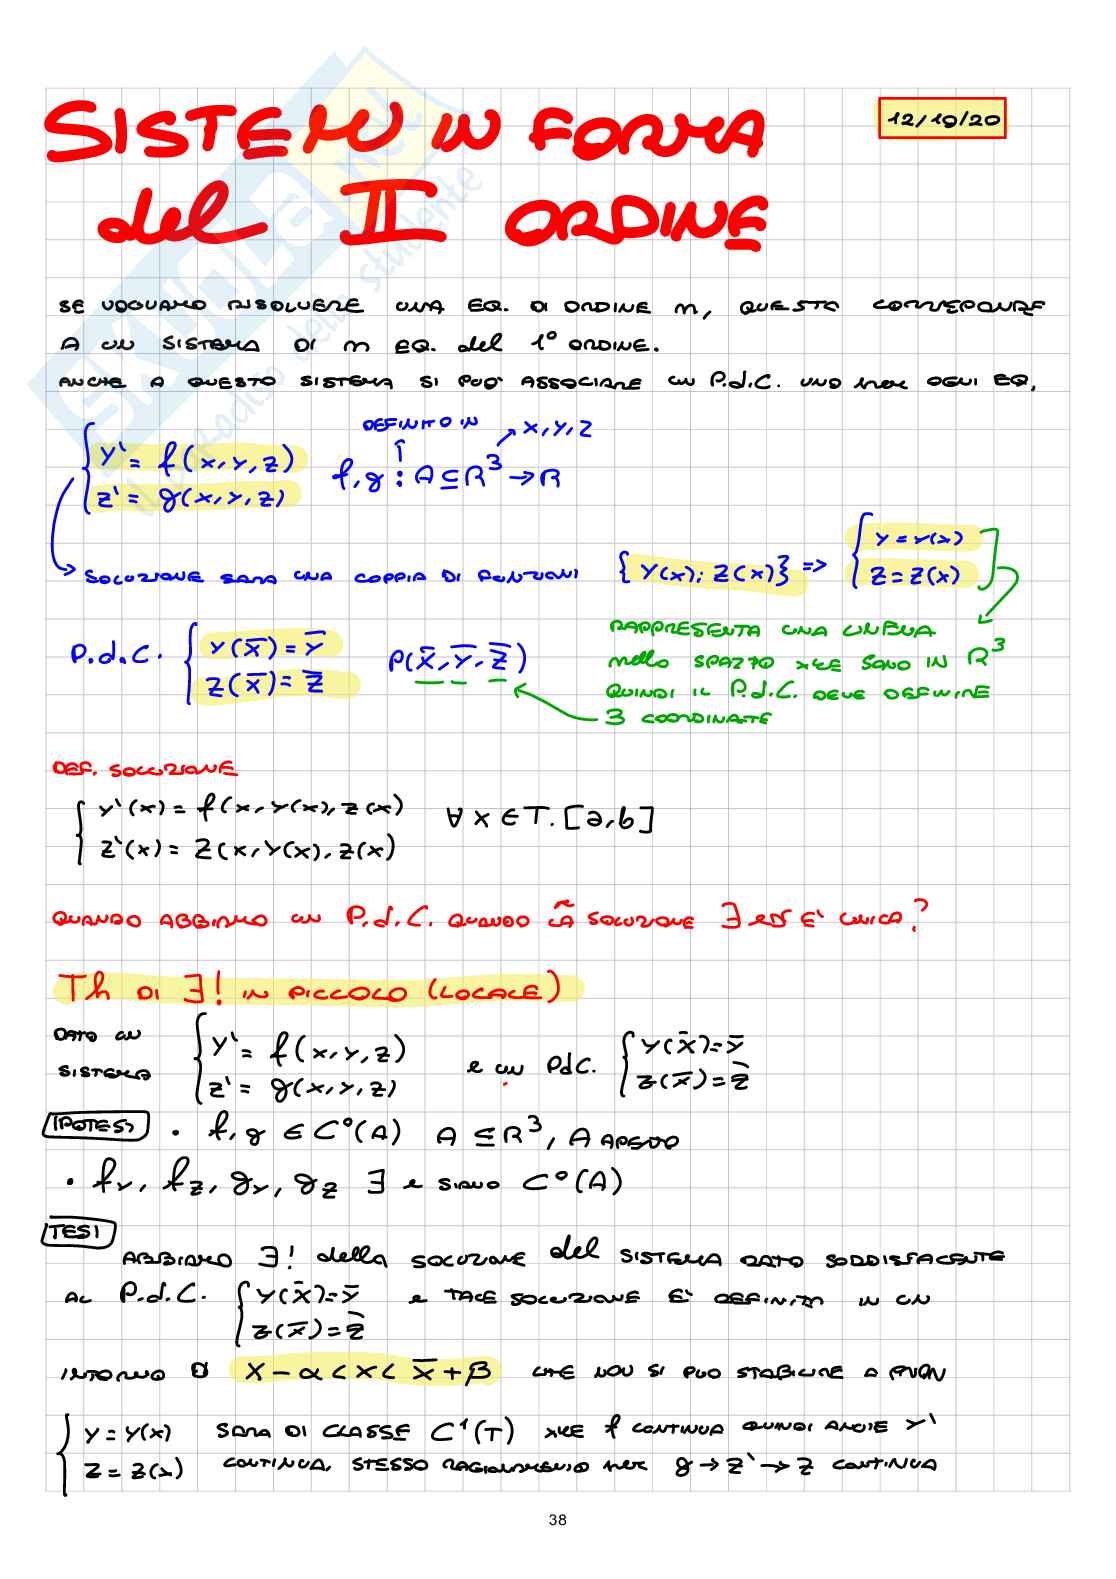 SISTEMI IN FORMA
12/10/20
del II ORDINE
SE VOGLIAMO RISOLVERE UNA EQ. DI ORDINE n, QUESTA CORRISPONDE
A UN SISTEMA DI n EQ. del 1° ORDINE.
ANCHE A QUESTO SISTEMA SI PUO' ASSOCIARE UN P.d.C. UNO PER OGNI EQ.
DEFINITO IN
x, y, z
{ y' = f(x, y, z)
z' = g(x, y, z)
f, g : A ⊆ R³ → R
SOLUZIONE SARA UNA COPPIA DI FUNZIONI { y(x); z(x) } => { y = y(x)
z = z(x)
P.d.C. { y(x̄) = ȳ
z(x̄) = z̄
P(x̄, ȳ, z̄)
RAPPRESENTA UNA LINEA
nello SPAZIO xke SONO IN R³
QUINDI IL P.d.C. DEVE DEFINIRE
3 COORDINATE
DEF. SOLUZIONE
{ y'(x) = f(x, y(x), z(x)
z'(x) = z(x, y(x), z(x)
∀ x ∈ T. [a, b]
QUANDO ABBIAMO UN P.d.C. QUANDO LA SOLUZIONE ∃ ed E' UNICA?
Th DI ∃! IN PICCOLO (LOCALE)
DATO UN
SISTEMA
{ y' = f(x, y, z)
z' = g(x, y, z)
e un PdC. { y(x̄) = ȳ
z(x̄) = z̄
IPOTESI • f, g ∈ C°(A) A ⊆ R³, A APERTO
• fy, fz, gy, gz ∃ e SIANO C°(A)
TESI
ABBIAMO ∃! della SOLUZIONE del SISTEMA DATO SODDISFACENTE
AL P.d.C. { y(x̄) = ȳ
z(x̄) = z̄
e TALE SOLUZIONE E' DEFINITA IN UN
INTORNO DI x - α < x < x̄ + β CHE NON SI PUO STABILIRE A PRIORI
{ y = y(x)
z = z(x)
SARA DI CLASSE C¹(T) xke f CONTINUA QUINDI ANCHE y'
CONTINUA, STESSO RAGIONAMENTO PER g → z' → z CONTINUA
38